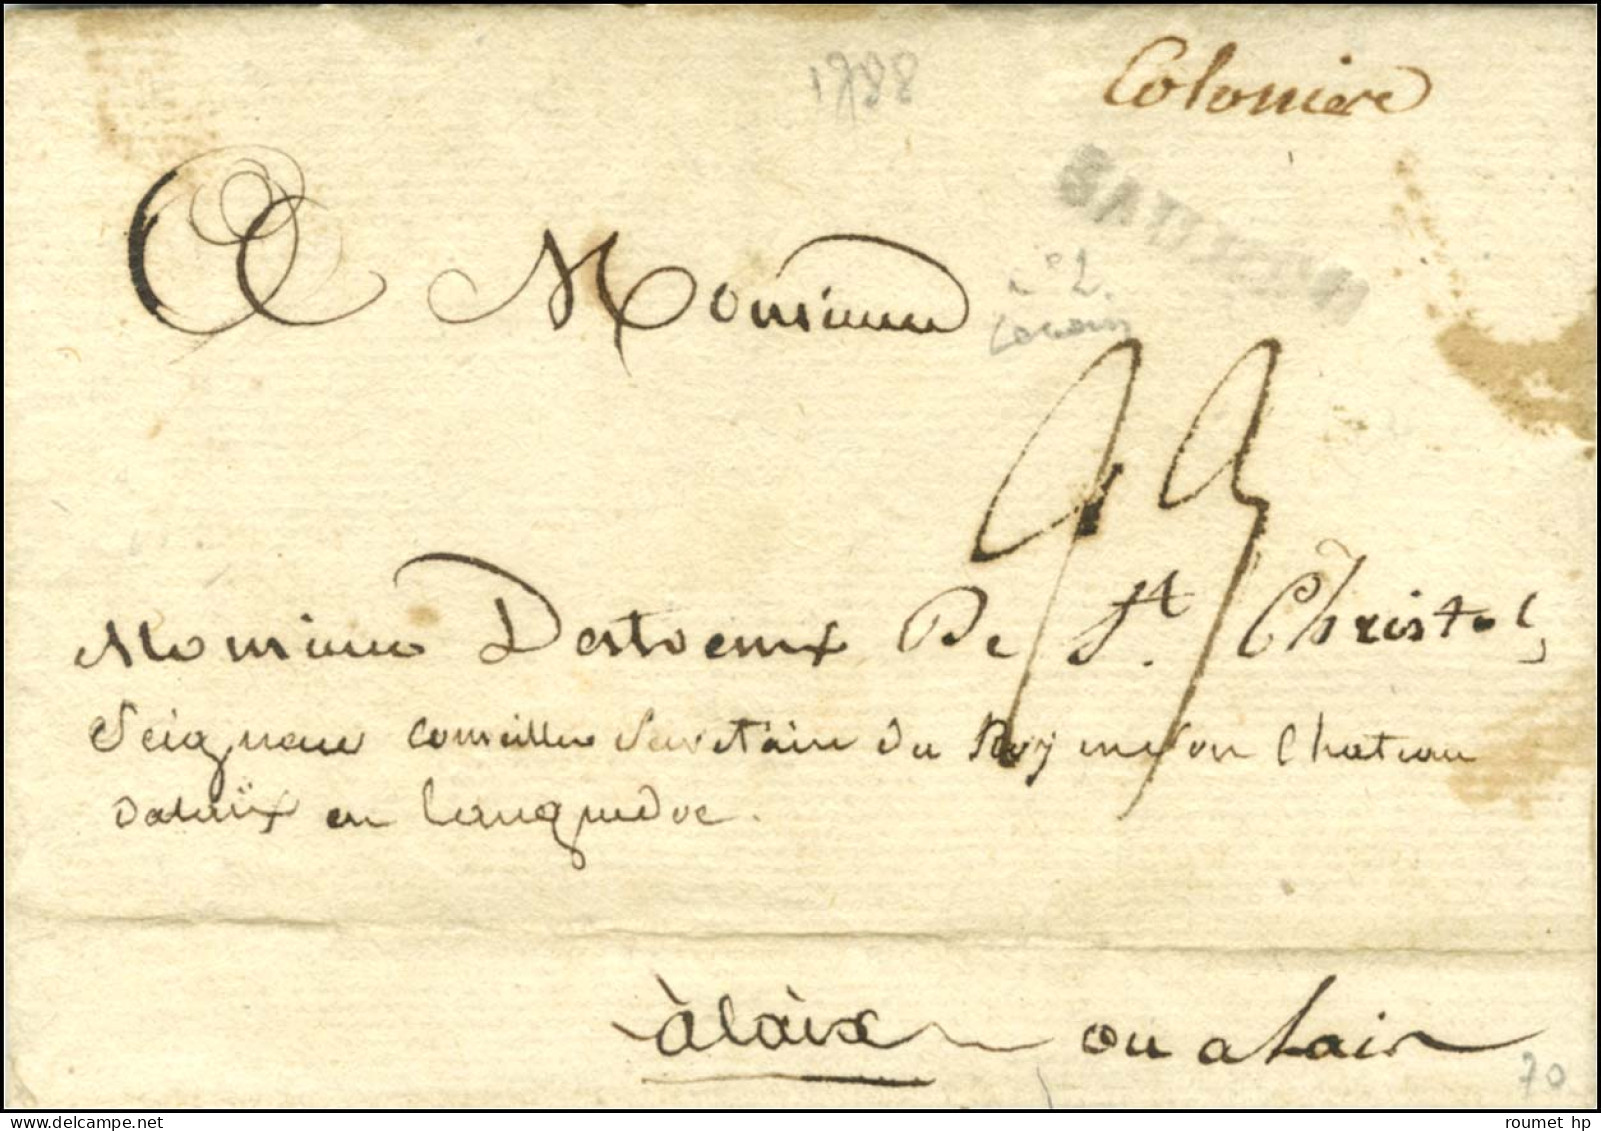 1788
Colonies
A Monsieur
n° 2
Monsieur Destoeux De St. Christol,
Seigneur Conseiller Secretaire du Roy en son Chateau
dalaïx en languedoc.
àlaix ou alais
70
www.delcampe.net
roumet_hp